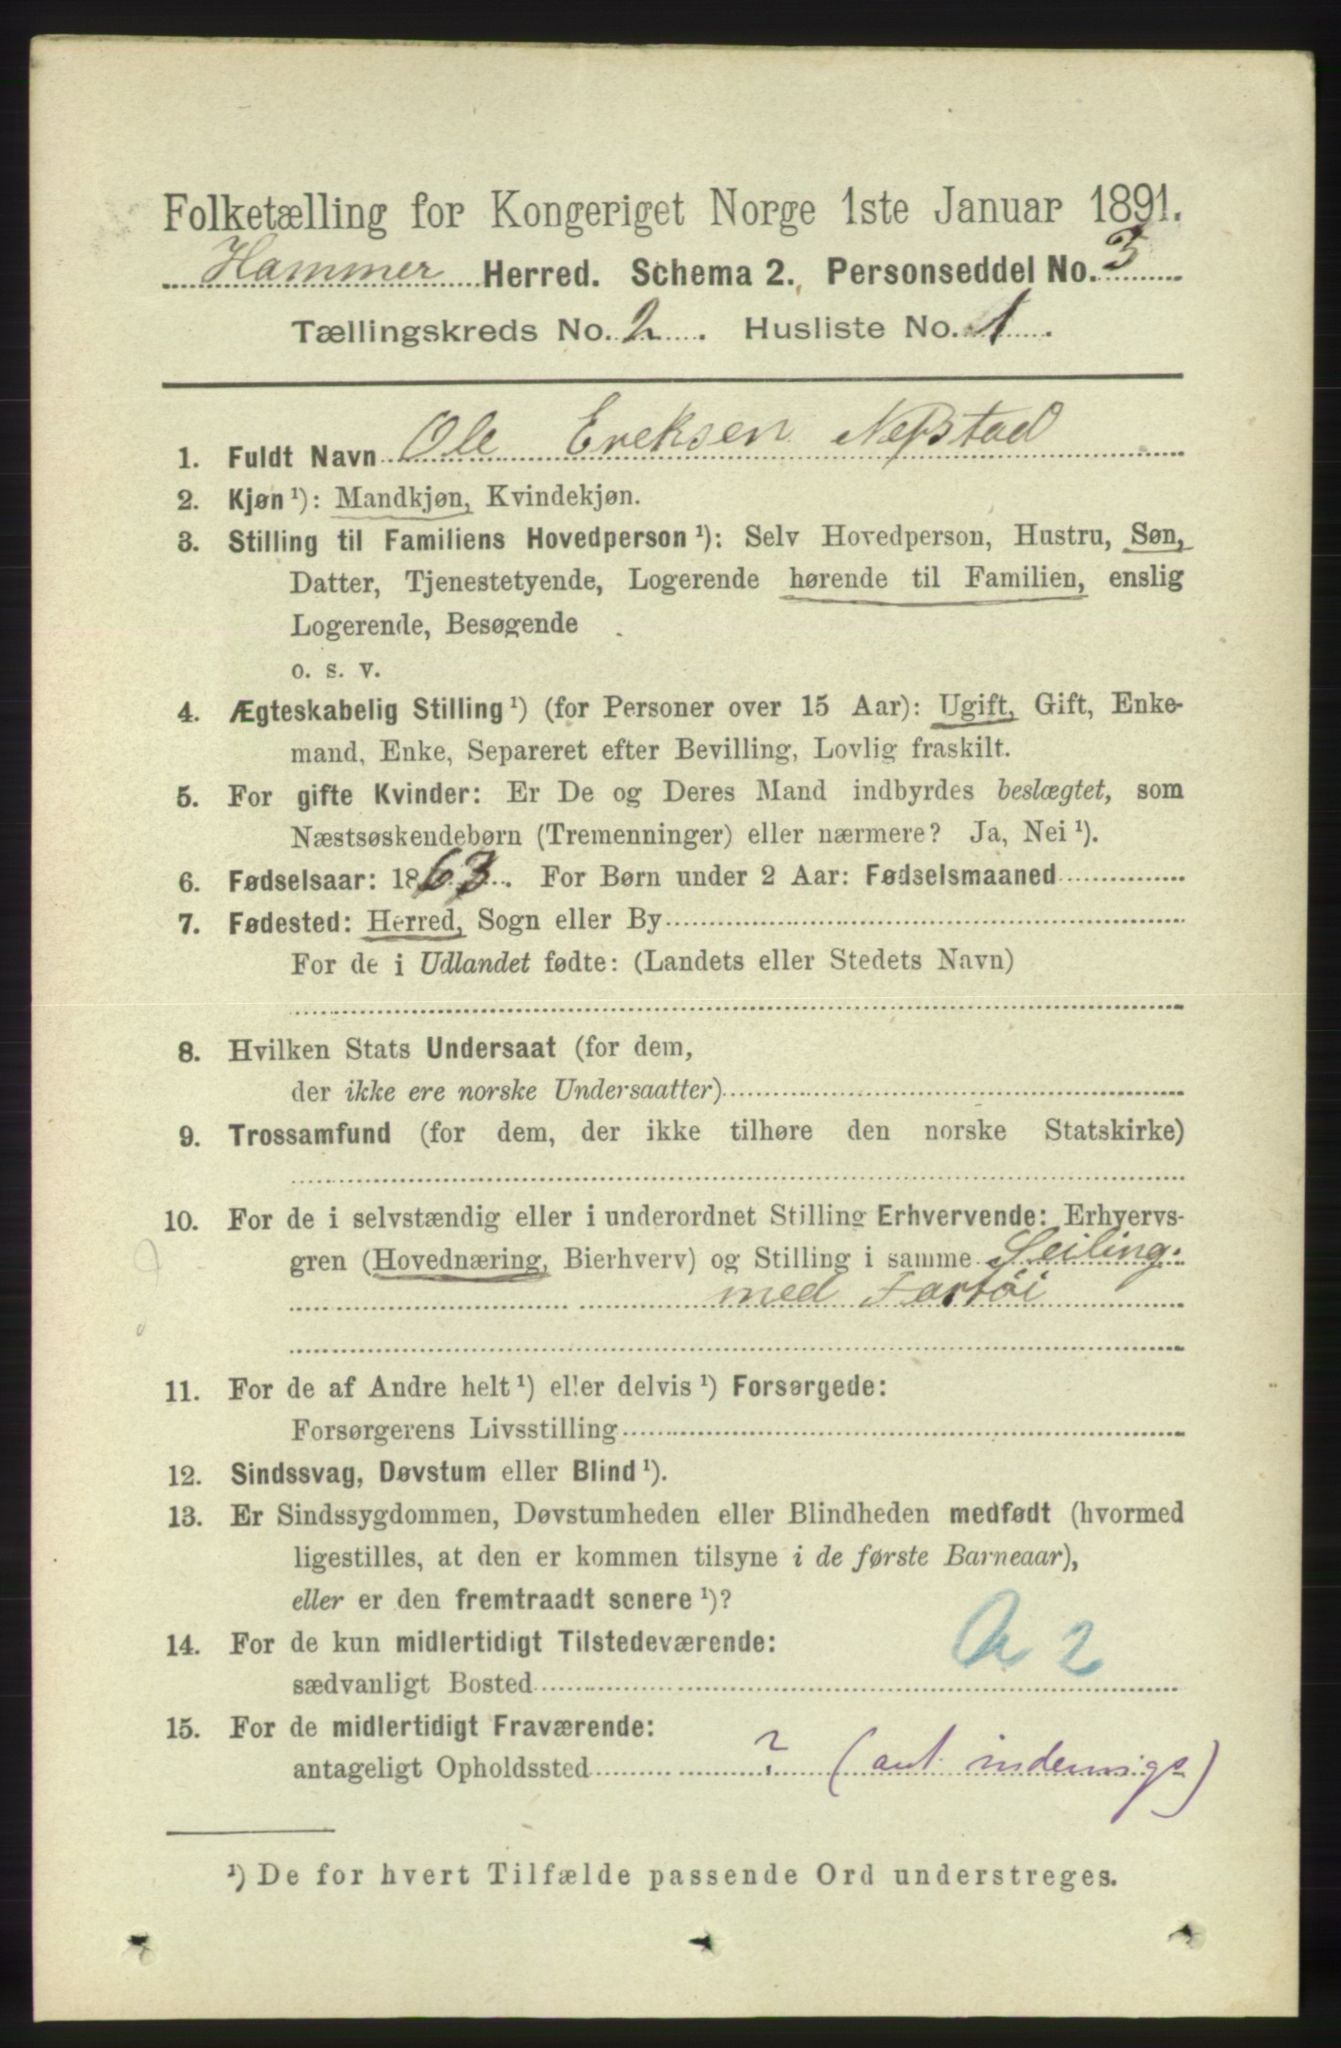 Folketælling for Kongeriget Norge 1ste Januar 1891.
Hammer Herred. Schema 2. Personseddel No. 3
Tællingskreds No. 2. Husliste No. 1.
1. Fuldt Navn Ole Ereksen Neßtad
2. Kjøn ¹): Mandkjøn, Kvindekjøn.
3. Stilling til Familiens Hovedperson ¹): Selv Hovedperson, Hustru, Søn,
Datter, Tjenestetyende, Logerende hørende til Familien, enslig
Logerende, Besøgende
o. s. v.
4. Ægteskabelig Stilling ¹) (for Personer over 15 Aar): Ugift, Gift, Enke-
mand, Enke, Separeret efter Bevilling, Lovlig fraskilt.
5. For gifte Kvinder: Er De og Deres Mand indbyrdes beslægtet, som
Næstsøskendebørn (Tremenninger) eller nærmere? Ja, Nei ¹).
6. Fødselsaar: 1863. For Børn under 2 Aar: Fødselsmaaned
7. Fødested: Herred, Sogn eller By
For de i Udlandet fødte: (Landets eller Stedets Navn)
8. Hvilken Stats Undersaat (for dem,
der ikke ere norske Undersaatter)
9. Trossamfund (for dem, der ikke tilhøre den norske Statskirke)
10. For de i selvstændig eller i underordnet Stilling Erhvervende: Erhvervs-
gren (Hovednæring, Bierhverv) og Stilling i samme Seiling.
med Fartöi
11. For de af Andre helt ¹) eller delvis ¹) Forsørgede:
Forsørgerens Livsstilling
12. Sindssvag, Døvstum eller Blind ¹).
13. Er Sindssygdommen, Døvstumheden eller Blindheden medfødt (hvormed
ligestilles, at den er kommen tilsyne i de første Barneaar),
eller er den fremtraadt senere ¹)?
14. For de kun midlertidigt Tilstedeværende:
sædvanligt Bosted
15. For de midlertidigt Fraværende:
antageligt Opholdssted ? (ant. indenrigs)
¹) De for hvert Tilfælde passende Ord understreges.